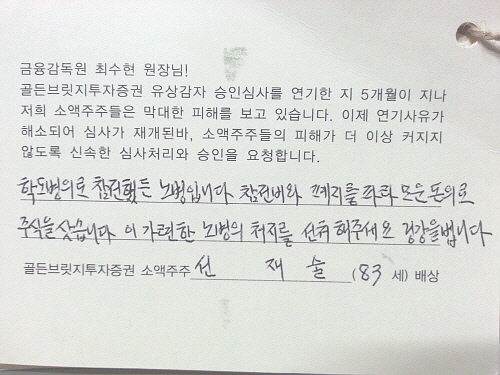 금융감독원 최수현 원장님!
골든브릿지투자증권 유상감자 승인심사를 연기한 지 5개월이 지나
저희 소액주주들은 막대한 피해를 보고 있습니다. 이제 연기사유가
해소되어 심사가 재개된바, 소액주주들의 피해가 더 이상 커지지
않도록 신속한 심사처리와 승인을 요청합니다.
학도병의로 참전했든 노병입니다 참전비와 폐지를 파라 모은돈의로
주식을 삿습니다 이 가련한 노병의 처지를 선처 해주세요 건강을 빕니다
골든브릿지투자증권 소액주주 선 재 술 (83 세) 배상